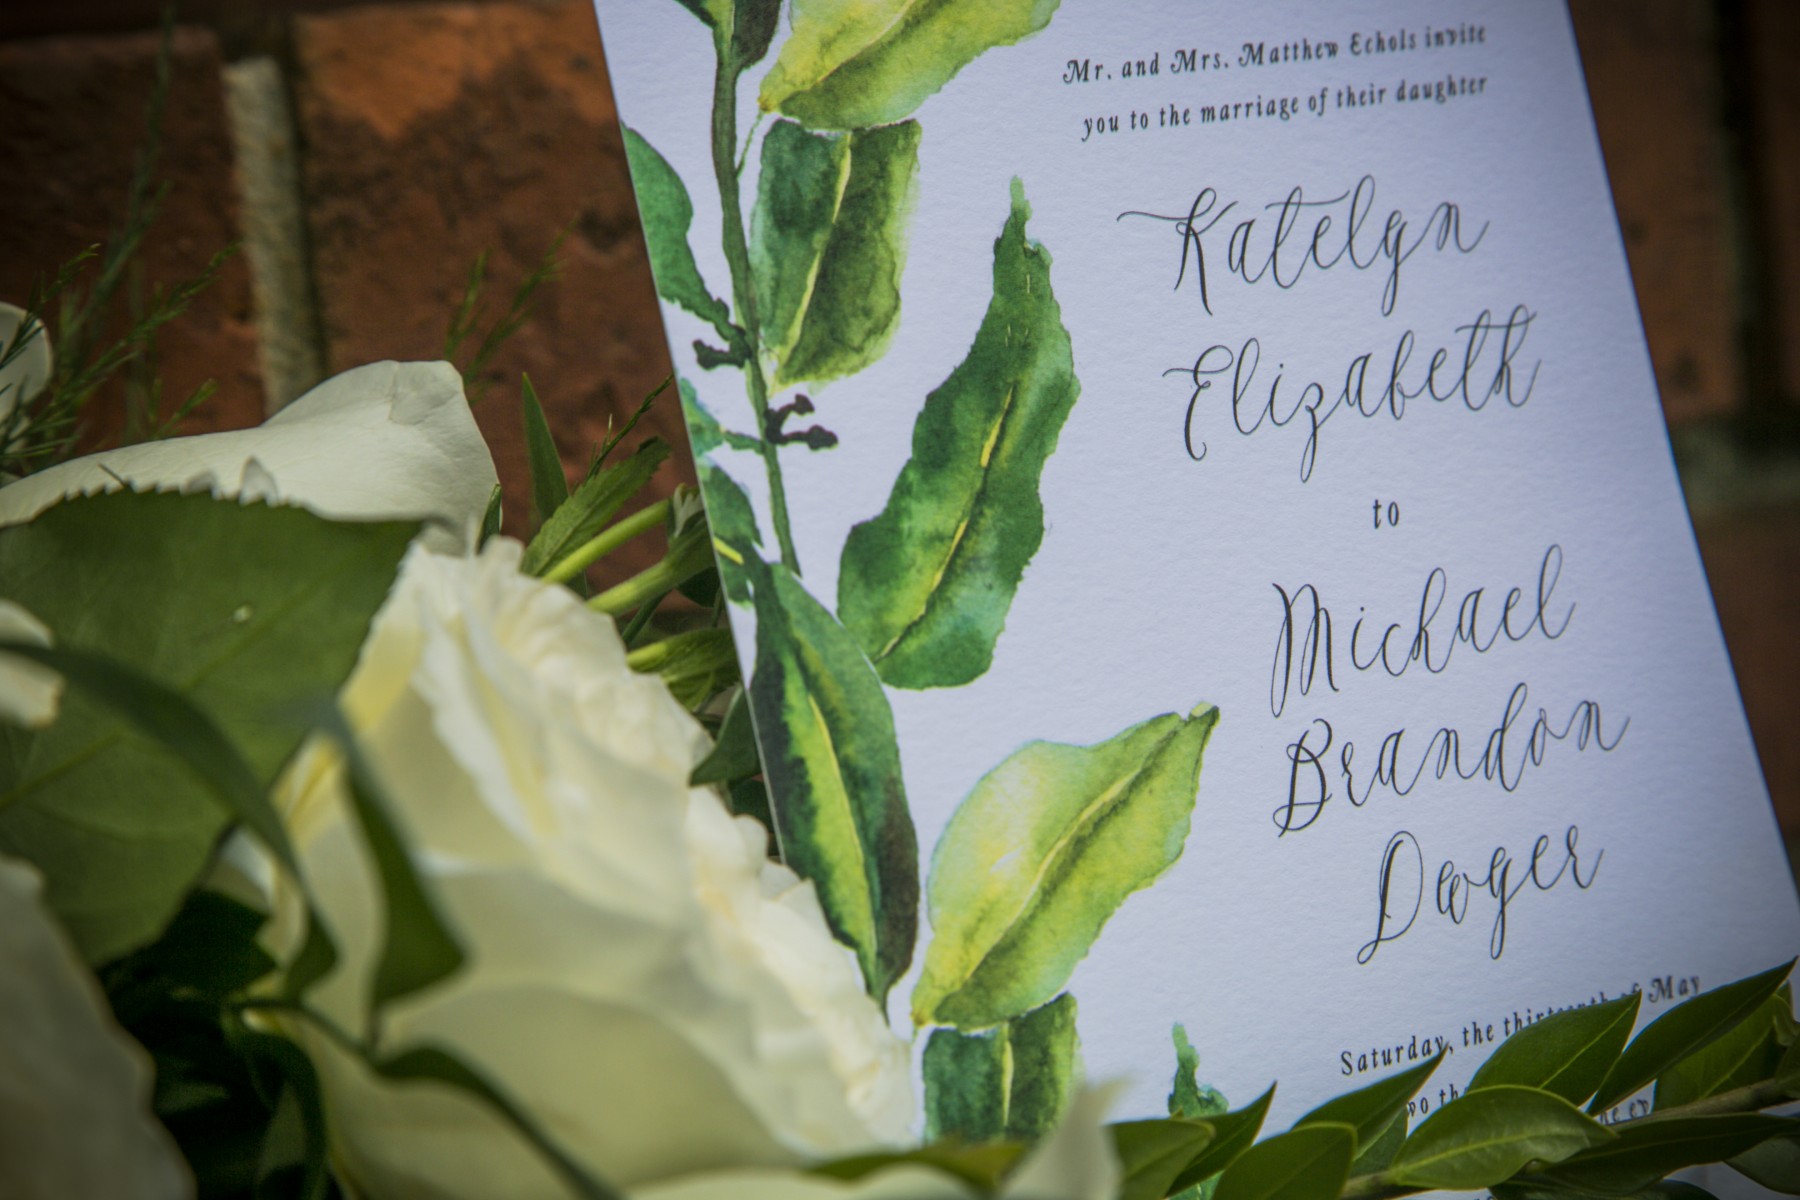 Mr. and Mrs. Matthew Echols invite
you to the marriage of their daughter
Katelyn
Elizabeth
to
Michael
Brandon
Dwyer
Saturday, the thirteenth of May